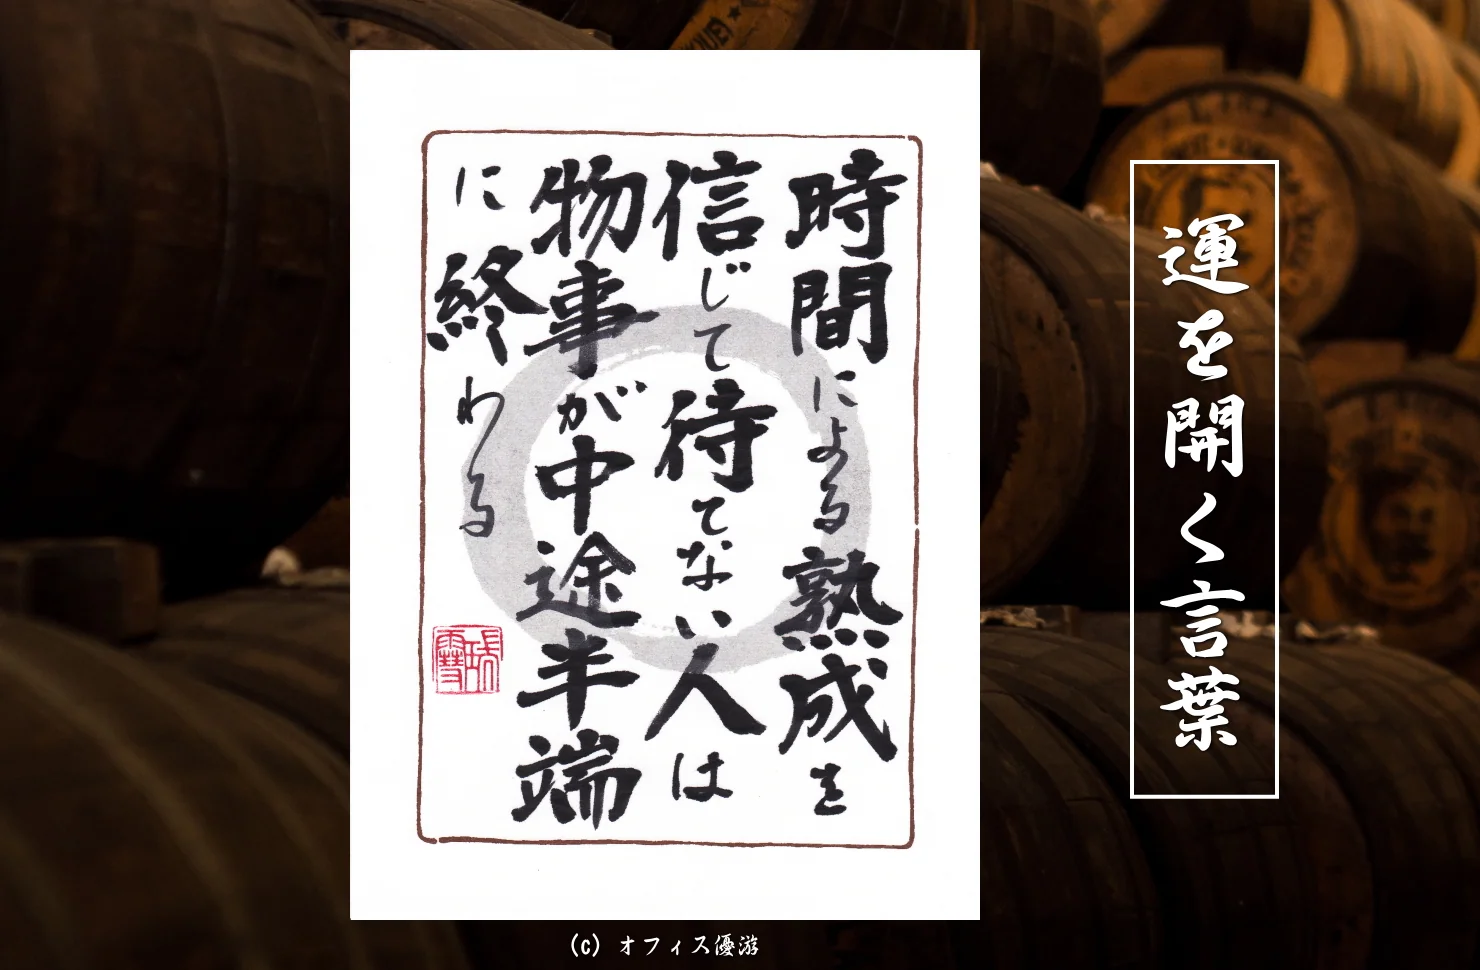 時間による熟成を
信じて待てない人は
物事が中途半端
に終わる
運を開く言葉
(c) オフィス優游